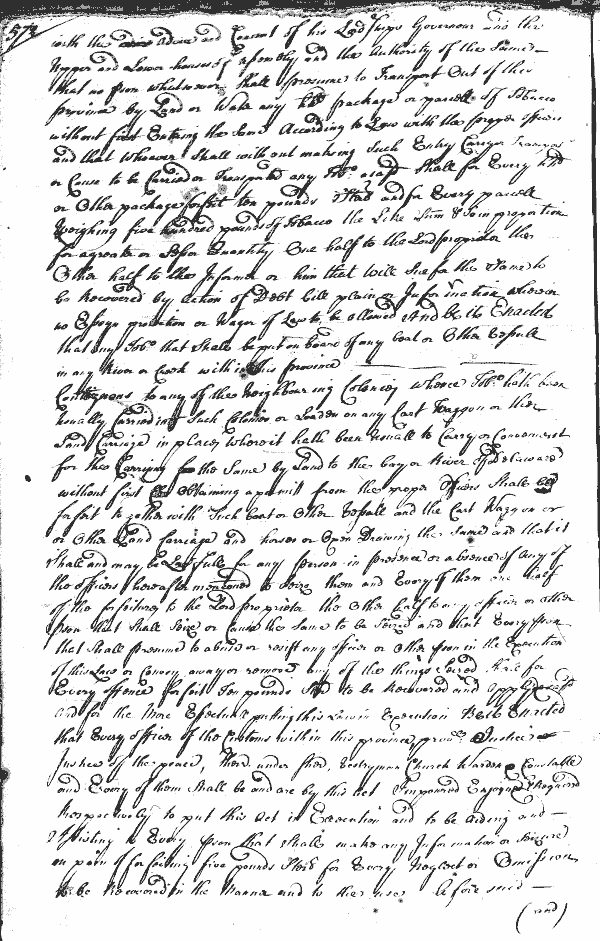 573
with the advice and Consent of his Lordships Governour and the
Upper and Lower houses of assembly and the Authority of the Same
that no pson whatsoever shall presume to Transport Out of this
province by Land or Water any hhd package or parcell of Tobacco
without first Entering the Same According to Law with the proper officers
and that whoever Shall without making Such Entry Carry or Transport
or Cause to be Carried or Transported any Tobo. as afsd Shall for Every hhd
or Other package forfeit ten pounds Sterl and for Every parcell
Weighing five hundred pounds of Tobacco the Like Sum & So in proportion
for a greater or Lesser Quantity One half to the Lord proprietor the
Other half to the Informer or him that will Sue for the Same to
be Recovered by action of Debt bill plaint or Information wherein
no Essoyn protection or Wager of Law to be allowed And be it Enacted
that any Tobo. that Shall be put on board of any boat or Other Vessell
in any River or Creek within this province
to any of the Neighbouring Colonies whence Tobo. hath been
usually Carried into Such Colonies or Loaden on any Cart Waggon or other
Land Carriage in places where it hath been usuall to Carry or Convenient
for the Carrying the Same by Land to the bay or River of Delaware
without first Obtaining a permitt from the proper Officers Shall be
forfeit together with Such boat or Other Vessell and the Cart Waggon or
or Other Land Carriage and horses or Oxen Drawing the Same and that it
Shall and may be Lawfull for any person in presence or absence of any of
the officers hereafter mentioned to Seize them and Every of them one half
of the forfeitures to the Lord proprietor the Other half to any officer or other
pson that Shall Seize or Cause the Same to be Seized and that Every pson
that Shall presume to abuse or resist any officer or Other pson in the Execution
of this Law or Convey away or remove any of the things Seized Shall for
Every offence forfeit Ten pounds Sterl to be Recovered and applyed as afsd
And for the More Effectual putting this Law in Execution Be it Enacted
that Every officer of the Customs within this province
Justices of the peace, Sheriff under Sheriff, Vestryman Church Warden & Constable
and Every of them Shall be and are by this Act Impowered Enjoyned & Required
Respectively to put this Act in Execution and to be aiding and
Assisting to Every pson that shall make any Information or Seizure
on pain of forfeiting five pounds Sterl for Every Neglect or Omission
to be Recovered in the Manner and to the uses before said
(and)